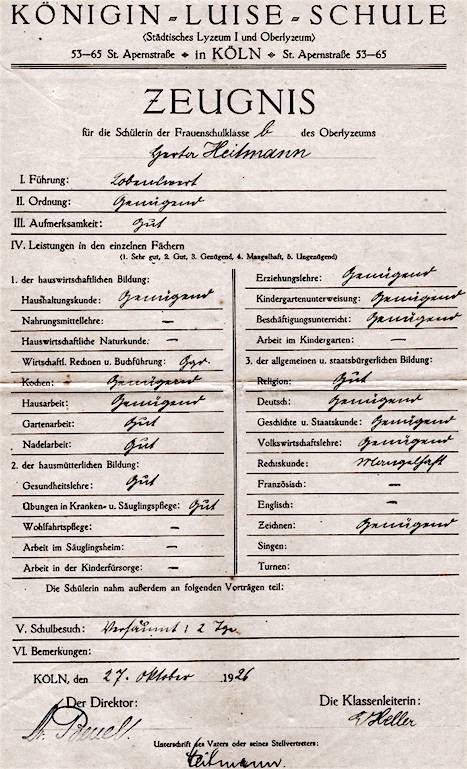 KÖNIGIN-LUISE-SCHULE
(Städtisches Lyzeum I und Oberlyzeum)
53—65 St. Apernstraße in KÖLN St. Apernstraße 53—65
ZEUGNIS
für die Schülerin der Frauenschulklasse b des Oberlyzeums
Herta Heitmann
I. Führung: Lobenswert
II. Ordnung: Genügend
III. Aufmerksamkeit: Gut
IV. Leistungen in den einzelnen Fächern
(1. Sehr gut, 2. Gut, 3. Genügend, 4. Mangelhaft, 5. Ungenügend)
1. der hauswirtschaftlichen Bildung:
Haushaltungskunde: Genügend
Nahrungsmittellehre: —
Hauswirtschaftliche Naturkunde: —
Wirtschaftl. Rechnen u. Buchführung: Ggd
Kochen: Genügend
Hausarbeit: Genügend
Gartenarbeit: Gut
Nadelarbeit: Gut
2. der hausmütterlichen Bildung:
Gesundheitslehre: Gut
Übungen in Kranken- u. Säuglingspflege: Gut
Wohlfahrtspflege: —
Arbeit im Säuglingsheim: —
Arbeit in der Kinderfürsorge: —
Erziehungslehre: Genügend
Kindergartenunterweisung: Genügend
Beschäftigungsunterricht: Genügend
Arbeit im Kindergarten: —
3. der allgemeinen u. staatsbürgerlichen Bildung:
Religion: Gut
Deutsch: Genügend
Geschichte u. Staatskunde: Genügend
Volkswirtschaftslehre: Genügend
Rechtskunde: Mangelhaft
Französisch: —
Englisch: —
Zeichnen: Genügend
Singen:
Turnen:
Die Schülerin nahm außerdem an folgenden Vorträgen teil:
V. Schulbesuch: Versäumt: 2 Tge
VI. Bemerkungen:
KÖLN, den 27. Oktober 1926
Der Direktor: Die Klassenleiterin:
Heller
Unterschrift des Vaters oder seines Stellvertreters:
Heitmann.